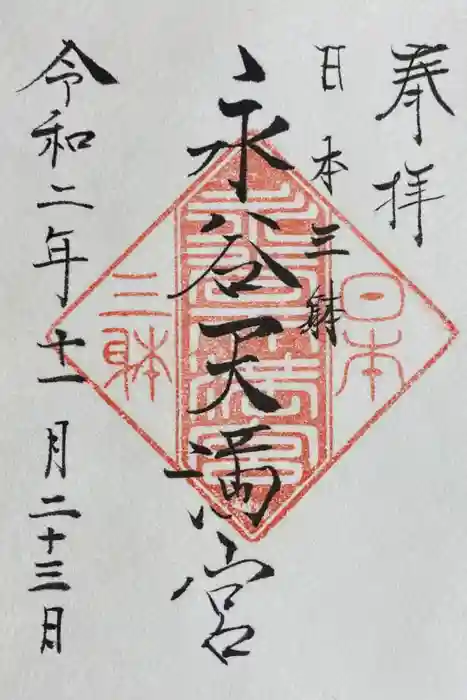 奉拝
日本三躰
永谷天満宮
令和二年十一月二十三日
日本
三躰
永谷天満宮